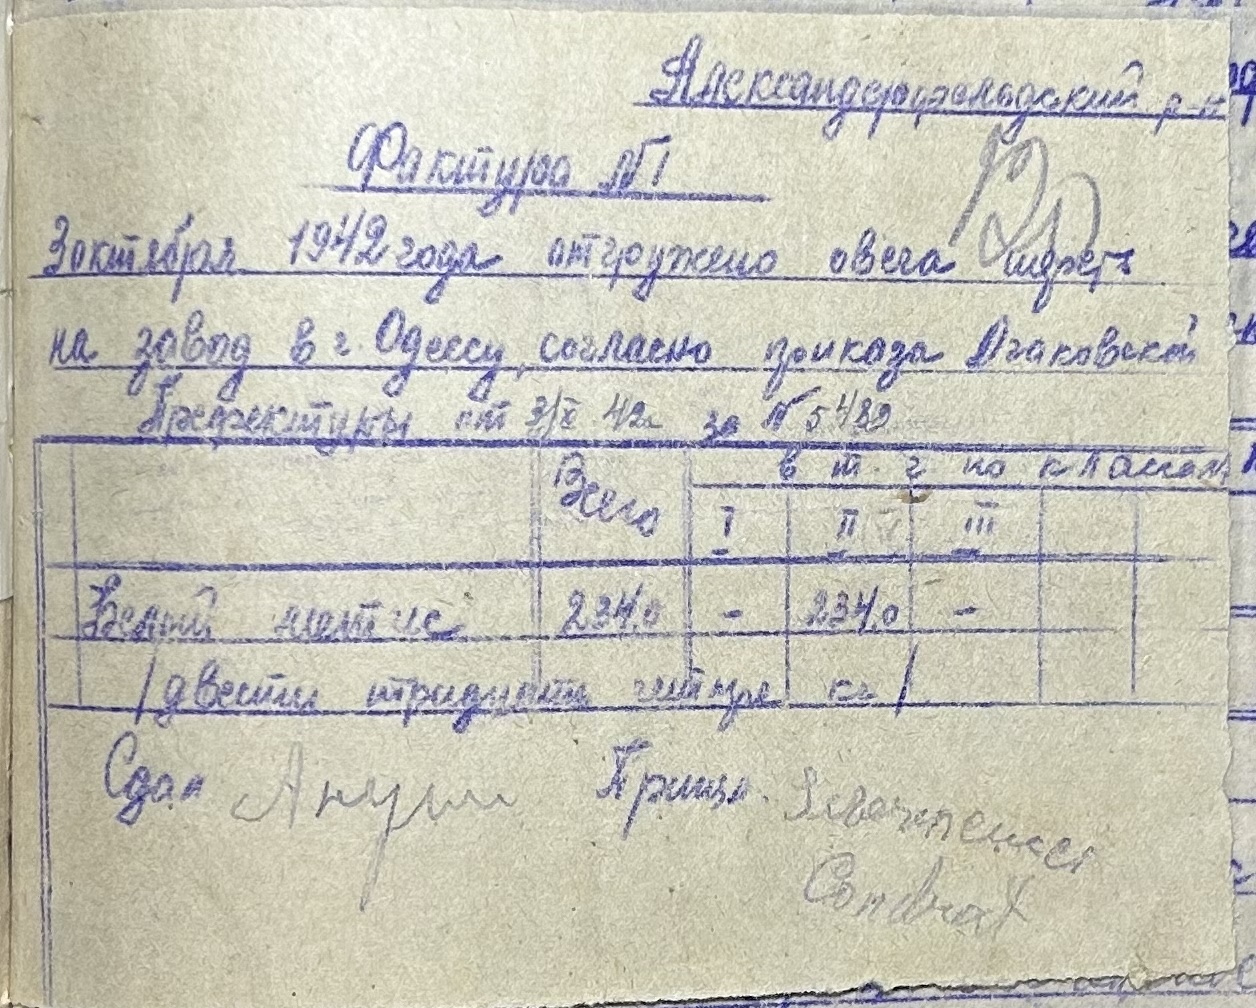 Александерфельдский р-н
Фактура №1
3 октября 1942 года отгружено овега шерсть
на завод в г. Одессу, согласно приказа Очаковской
Префектуры от 3/X 42г за № 5482
Всего
в т. г по классам
I II III
Белой метис 234,0 - 234,0 -
/двести тридцать четыре кг/
Сдал Принял.
Condrat